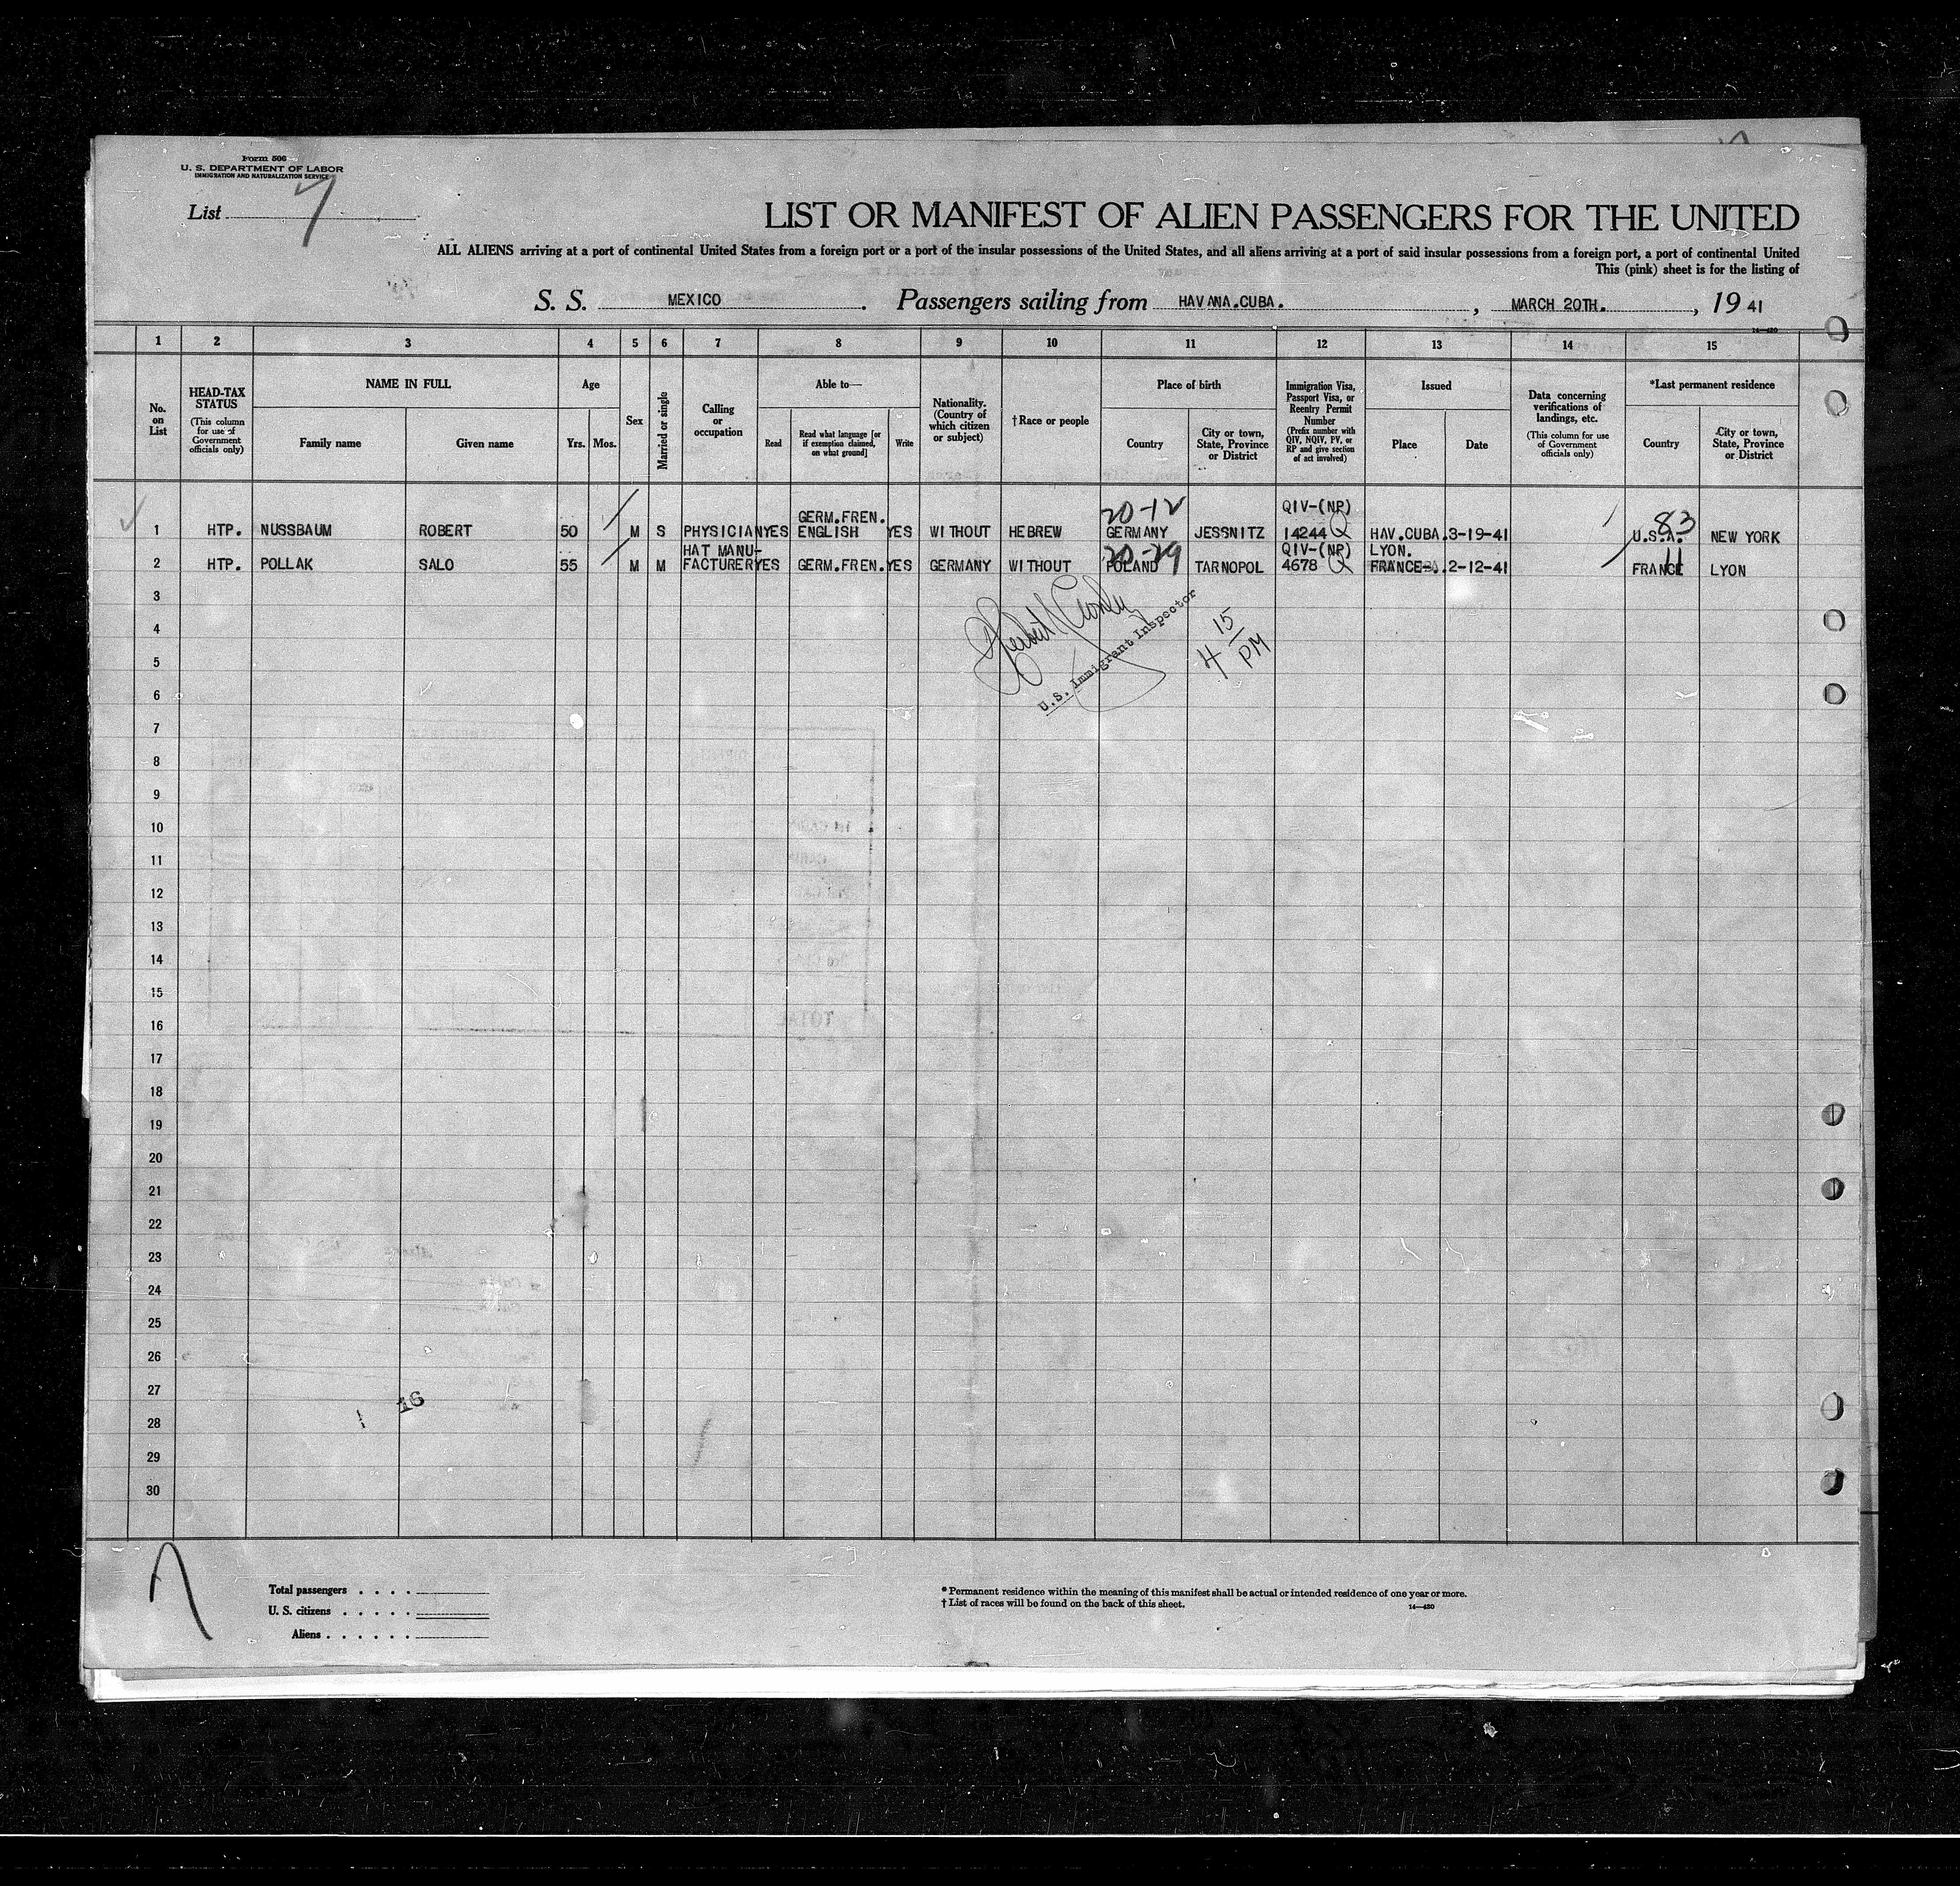 Form 506
U. S. DEPARTMENT OF LABOR
IMMIGRATION AND NATURALIZATION SERVICE
List 7
LIST OR MANIFEST OF ALIEN PASSENGERS FOR THE UNITED
ALL ALIENS arriving at a port of continental United States from a foreign port or a port of the insular possessions of the United States, and all aliens arriving at a port of said insular possessions from a foreign port, a port of continental United
This (pink) sheet is for the listing of
S. S. MEXICO. Passengers sailing from HAVANA.CUBA., MARCH 20TH., 1941
14—430
1 2 3 4 5 6 7 8 9 10 11 12 13 14 15
No. on List
HEAD-TAX STATUS (This column for use of Government officials only)
NAME IN FULL
Family name Given name
Age
Yrs. Mos.
Sex
Married or single
Calling or occupation
Able to—
Read
Read what language [or if exemption claimed, on what ground]
Write
Nationality. (Country of which citizen or subject)
†Race or people
Place of birth
Country
City or town, State, Province or District
Immigration Visa, Passport Visa, or Reentry Permit Number (Prefix number with QIV, NQIV, PV, or RP and give section of act involved)
Issued
Place Date
Data concerning verifications of landings, etc. (This column for use of Government officials only)
*Last permanent residence
Country
City or town, State, Province or District
20-12 83
GERM.FREN. QIV-(NP)
1 HTP. NUSSBAUM ROBERT 50 M S PHYSICIAN YES ENGLISH YES WITHOUT HEBREW GERMANY JESSNITZ 14244 Q HAV.CUBA. 3-19-41 U.S.A. NEW YORK
HAT MANU- 20-29 QIV-(NP) LYON. 11
2 HTP. POLLAK SALO 55 M M FACTURER YES GERM.FREN. YES GERMANY WITHOUT POLAND TARNOPOL 4678 Q FRANCE 2-12-41 FRANCE LYON
3
4
U.S. Immigrant Inspector
4 15 PM
5
6
7
8
9
10
11
12
13
14
15
16
17
18
19
20
21
22
23
24
25
26
27
1 16
28
29
30
Total passengers . . . .
U. S. citizens . . . . .
Aliens . . . . . .
* Permanent residence within the meaning of this manifest shall be actual or intended residence of one year or more.
† List of races will be found on the back of this sheet.
14—430